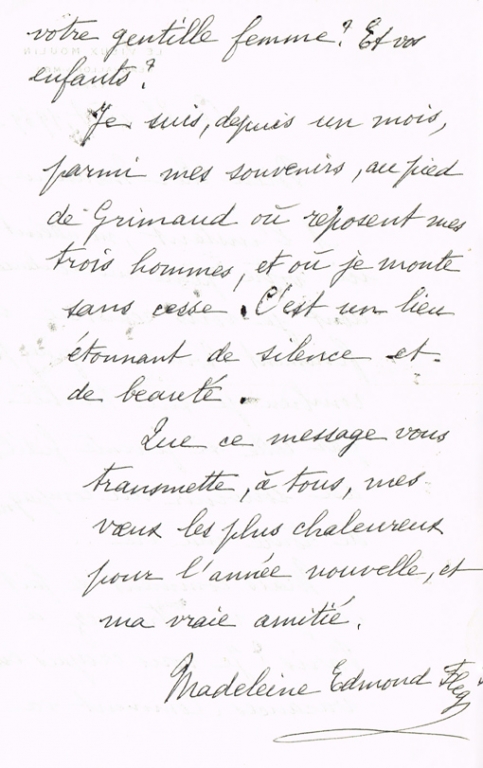 votre gentille femme? Et vos
enfants?
Je suis, depuis un mois,
parmi mes souvenirs, au pied
de Grimaud où reposent mes
trois hommes, et où je monte
sans cesse. C'est un lieu
étonnant de silence et
de beauté.
Que ce message vous
transmette, à tous, mes
vœux les plus chaleureux
pour l'année nouvelle, et
ma vraie amitié.
Madeleine Edmond Fleg